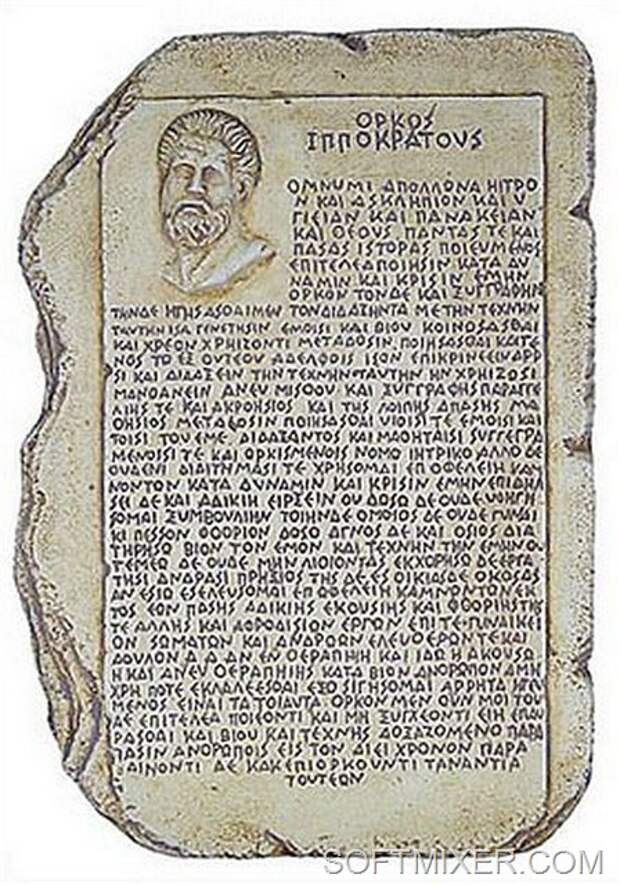 ΟΡΚΟS
ΙΠΠΟΚΡΑΤΟUS
ΟΜΝUΜΙ ΑΠΟΛΛΩΝΑ ΗΙΤΡΟ
Ν ΚΑΙ ΑSΚΛΗΠΙΟΝ ΚΑΙ U
ΓΙΕΙΑΝ ΚΑΙ ΠΑΝΑΚΕΙΑΝ
ΚΑΙ ΘΕΟUS ΠΑΝΤΑS ΤΕ ΚΑΙ
ΠΑSΑS ΙSΤΟΡΑS ΠΟΙΕUΜΕΝΟS
ΕΠΙΤΕΛΕΑ ΠΟΙΗSΙΝ ΚΑΤΑ ΔU
ΝΑΜΙΝ ΚΑΙ ΚΡΙSΙΝ ΕΜΗΝ
ΟΡΚΟΝ ΤΟΝΔΕ ΚΑΙ ΞUΓΓΡΑΦΗΝ
ΤΗΝΔΕ ΗΓΗSΑSΘΑΙ ΜΕΝ ΤΟΝ ΔΙΔΑΞΗΝΤΑ ΜΕ ΤΗΝ ΤΕΧΝΗΝ
ΤΑUΤΗΝ ΙSΑ ΓΕΝΕΤΗSΙΝ ΕΜΟΙSΙ ΚΑΙ ΒΙΟU ΚΟΙΝΟSΑSΘΑΙ
ΚΑΙ ΧΡΕΟΝ ΧΡΗΙΖΟΝΤΙ ΜΕΤΑΔΟSΙΝ ΠΟΙΗSΑSΘΑΙ ΚΑΙ ΓΕ
ΝΟS ΤΟ ΕΞ ΟUΤΕΟU ΑΔΕΛΦΟΙS ΙSΟΝ ΕΠΙΚΡΙΝΕΕΙΝ ΑΡΡ
SΙ ΚΑΙ ΔΙΔΑΞΕΙΝ ΤΗΝ ΤΕΧΝΗΝ ΤΑUΤΗΝ ΗΝ ΧΡΗΙΖΟSΙ
ΜΑΝΘΑΝΕΙΝ ΑΝΕU ΜΙSΘΟU ΚΑΙ ΞUΓΓΡΑΦΗS ΠΑΡΑΓΓΕ
ΛΙΗS ΤΕ ΚΑΙ ΑΚΡΟΗSΙΟS ΚΑΙ ΤΗS ΛΟΙΠΗS ΑΠΑSΗS ΜΑ
ΘΗSΙΟS ΜΕΤΑΔΟSΙΝ ΠΟΙΗSΑSΘΑΙ UΙΟΙSΙ ΤΕ ΕΜΟΙSΙ ΚΑΙ
ΤΟΙSΙ ΤΟU ΕΜΕ ΔΙΔΑΞΑΝΤΟS ΚΑΙ ΜΑΘΗΤΑΙSΙ SUΓΓΕΓΡΑ
ΜΕΝΟΙSΙ ΤΕ ΚΑΙ ΟΡΚΙSΜΕΝΟΙS ΝΟΜΟ ΙΗΤΡΙΚΟ ΑΛΛΟ ΔΕ
ΟUΔΕΝΙ ΔΙΑΙΤΗΜΑSΙ ΤΕ ΧΡΗSΟΜΑΙ ΕΠ ΟΦΕΛΕΙΗ ΚΑΜ
ΝΟΝΤΟΝ ΚΑΤΑ ΔUΝΑΜΙΝ ΚΑΙ ΚΡΙSΙΝ ΕΜΗΝ ΕΠΙ ΔΗΛΗ
SΕΙ ΔΕ ΚΑΙ ΑΔΙΚΙΗ ΕΙΡΞΕΙΝ ΟU ΔΩSΩ ΔΕ ΟUΔΕ UΦΗΓΗ
SΟΜΑΙ ΞUΜΒΟUΛΙΗΝ ΤΟΙΗΝΔΕ ΟΜΟΙΟS ΔΕ ΟUΔΕ ΓUΝΑΙ
ΚΙ ΠΕSSΟΝ ΦΘΟΡΙΟΝ ΔΟSΩ ΑΓΝΟS ΔΕ ΚΑΙ ΟSΙΟS ΔΙΑ
ΤΗΡΗSΩ ΒΙΟΝ ΤΟΝ ΕΜΟΝ ΚΑΙ ΤΕΧΝΗΝ ΤΗΝ ΕΜΗΝ Ο
ΤΕΜΕΩ ΔΕ ΟUΔΕ ΜΗΝ ΛΙΘΙΟΝΤΑS ΕΚΧΟΡΗSΩ ΔΕ ΕΡΓΑ
ΤΗSΙ ΑΝΔΡΑSΙ ΠΡΗΞΙΟS ΤΗS ΔΕ ΕS ΟΙΚΙΑS ΔΕ ΟΚΟSΑS
ΑΝ ΕSΙΩ ΕSΕΛΕUSΟΜΑΙ ΕΠ ΟΦΕΛΕΙΗ ΚΑΜΝΟΝΤΟΝ ΕΚ
ΤΟS ΕΩΝ ΠΑSΗS ΑΔΙΚΙΗS ΕΚΟUSΙΗS ΚΑΙ ΦΘΟΡΙΗS ΤΗS
ΤΕ ΑΛΛΗS ΚΑΙ ΑΦΡΟΔΙSΙΩΝ ΕΡΓΩΝ ΕΠΙ ΤΕ ΓUΝΑΙΚΕΙ
ΟΝ SΩΜΑΤΩΝ ΚΑΙ ΑΝΔΡΩΩΝ ΕΛΕUΘΕΡΩΝ ΤΕ ΚΑΙ
ΔΟUΛΟΝ Α Δ ΑΝ ΕΝ ΘΕΡΑΠΗΙΗ ΚΑΙ ΙΔΩ Η ΑΚΟUSΩ
Η ΚΑΙ ΑΝΕU ΘΕΡΑΠΗΙΗS ΚΑΤΑ ΒΙΟΝ ΑΝΘΡΩΠΟΝ Α ΜΗ
ΧΡΗ ΠΟΤΕ ΕΚΛΑΛΕΕSΘΑΙ ΕΞΟ SΙΓΗSΟΜΑΙ ΑΡΡΗΤΑ
ΜΕΝΟS ΕΙΝΑΙ ΤΑ ΤΟΙΑUΤΑ ΟΡΚΟΝ ΜΕΝ ΟUΝ ΜΟΙ ΤΟΝ
ΔΕ ΕΠΙΤΕΛΕΑ ΠΟΙΕΟΝΤΙ ΚΑΙ ΜΗ ΞUΓΧΕΟΝΤΙ ΕΙΗ ΕΠΑU
ΡΑSΘΑΙ ΚΑΙ ΒΙΟU ΚΑΙ ΤΕΧΝΗS ΔΟΞΑΖΟΜΕΝΟ ΠΑΡΑ
ΠΑSΙΝ ΑΝΘΡΟΠΟΙS ΕΙS ΤΟΝ ΑΙΕΙ ΧΡΟΝΟΝ ΠΑΡΑ
ΒΑΙΝΟΝΤΙ ΔΕ ΚΑΚ ΕΠΙΟΡΚΟUΝΤΙ ΤΑΝΑΝΤΙΑ
ΤΟUΤΕΩΝ
SOFTMIXER.COM